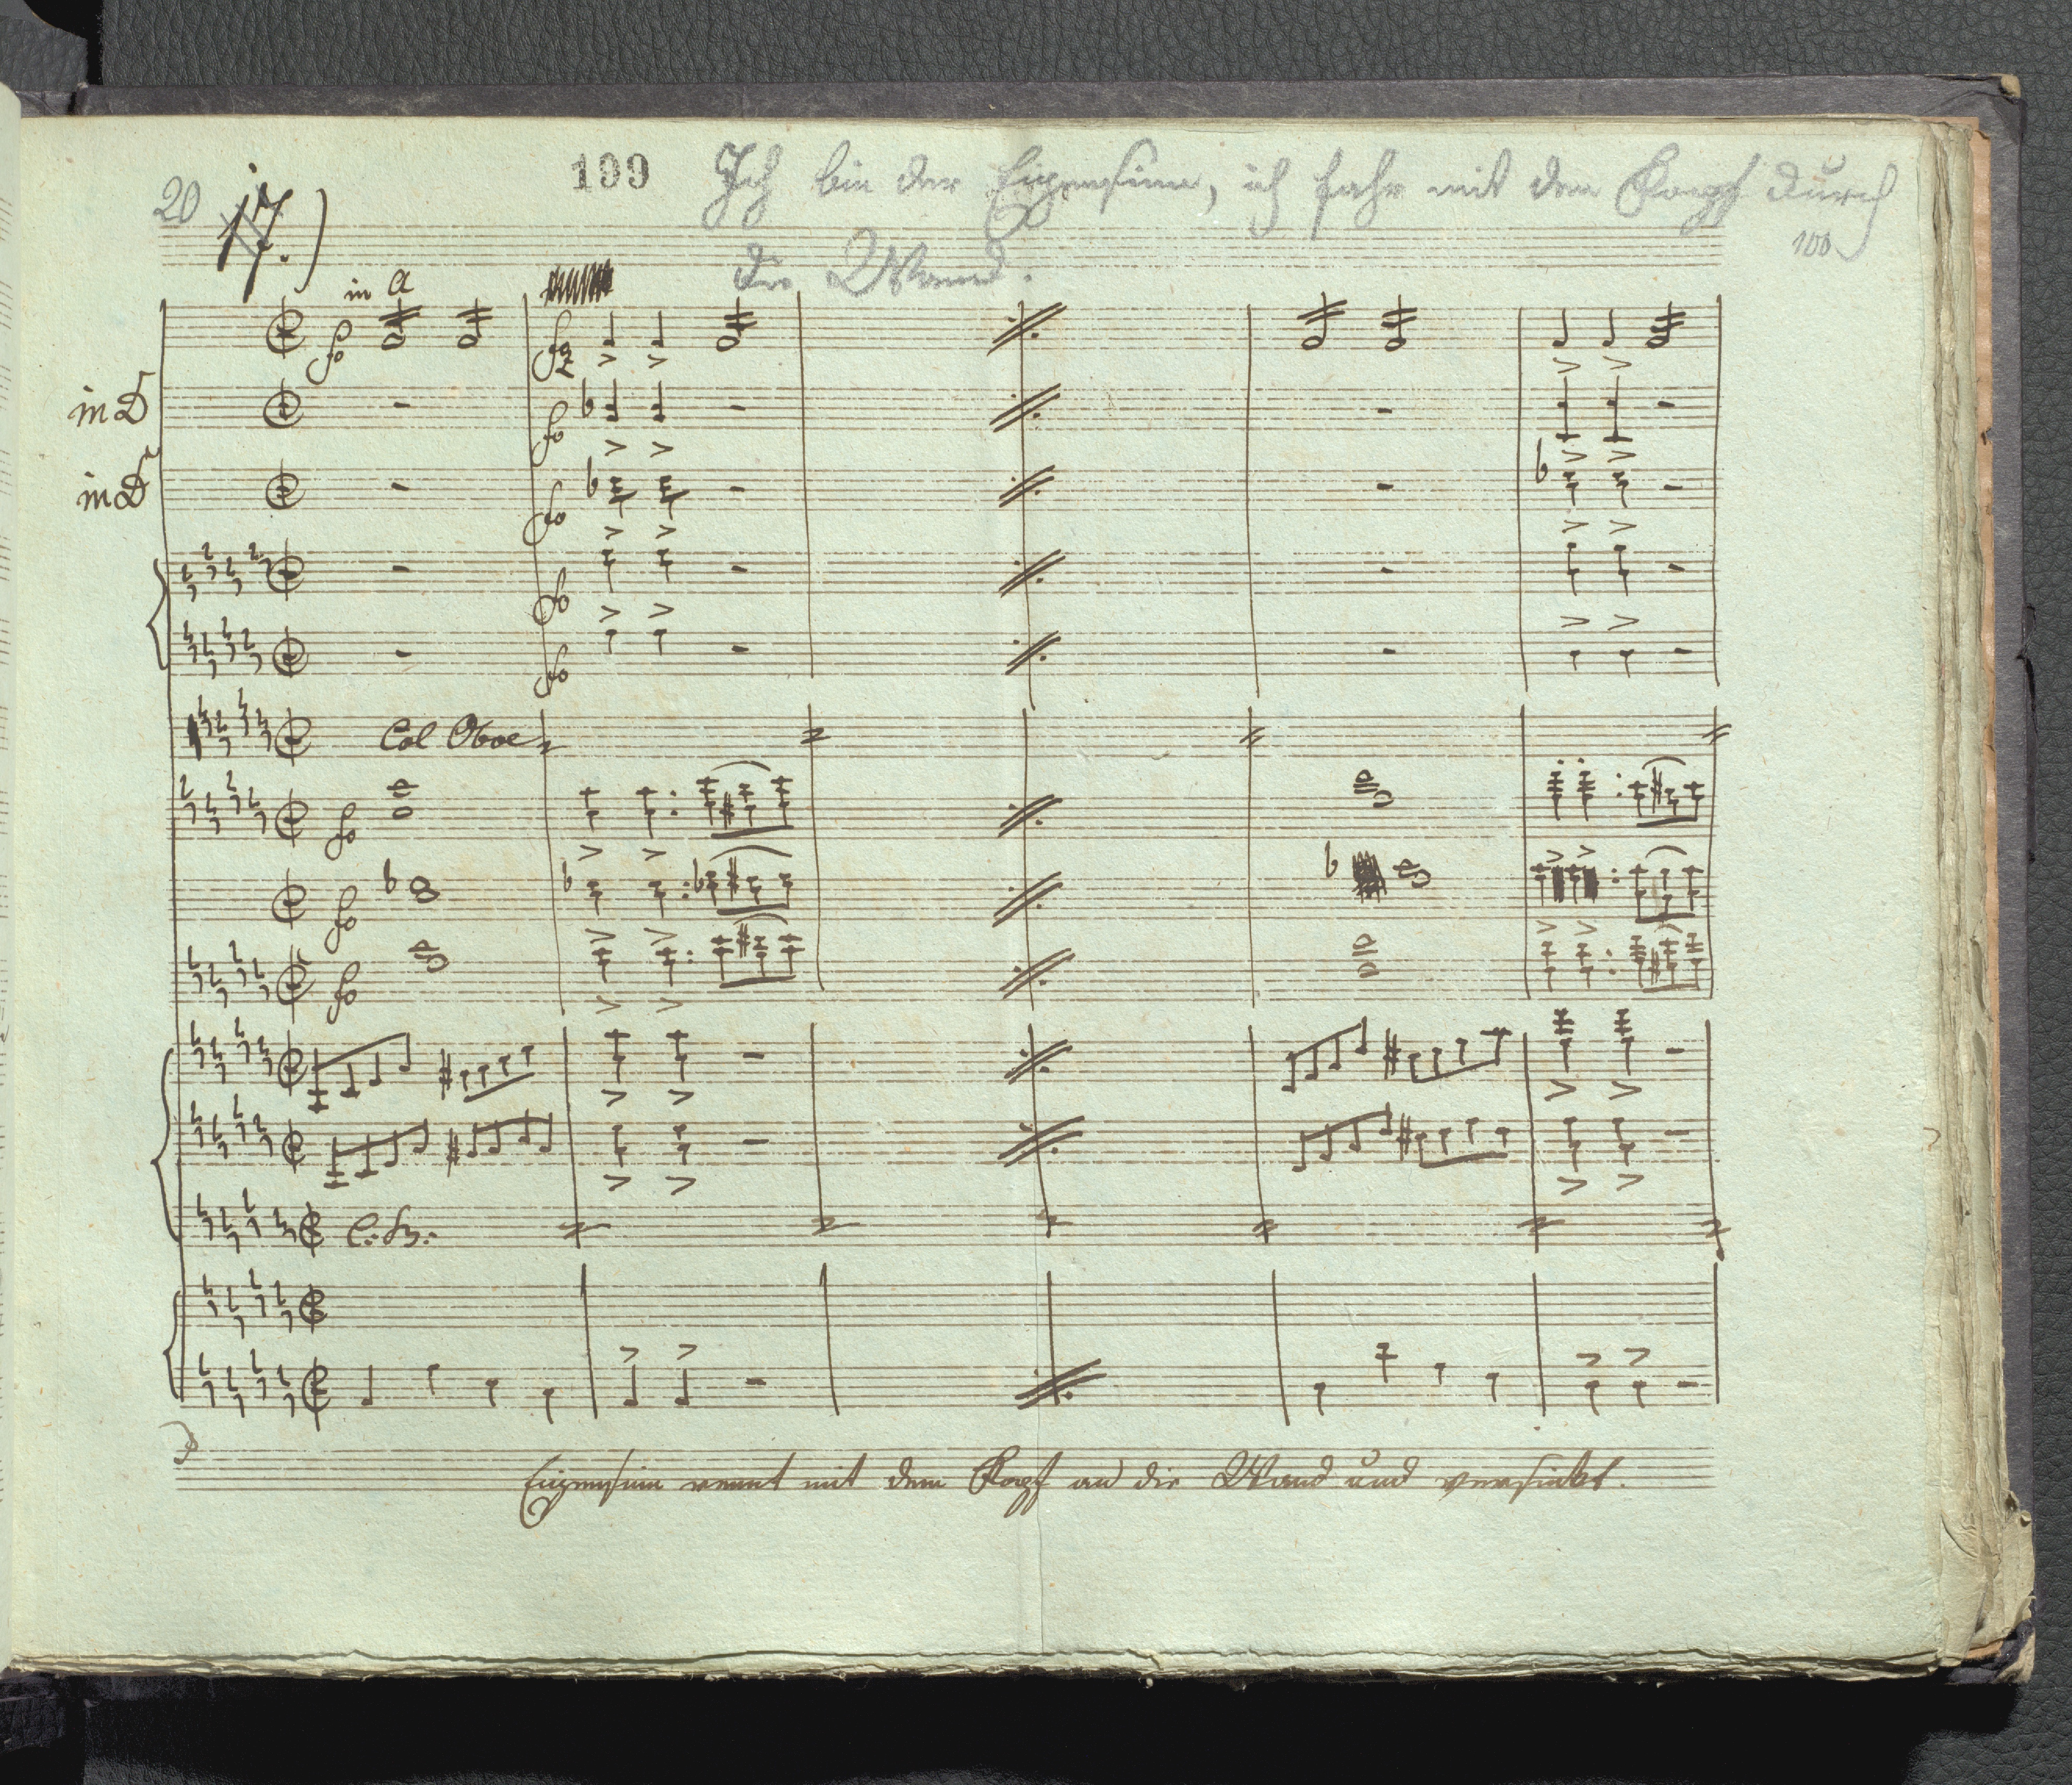 109 Ich bin der Eigensinn, ich fahr mit dem Kopf durch
20 17.)
100
die Wand.
in A
fo fz
in D fo
in D fo
fo
fo
Col Oboe
fo
fo
fo
C: Vz:
Eigensinn rennt mit dem Kopf an die Wand und versinkt.